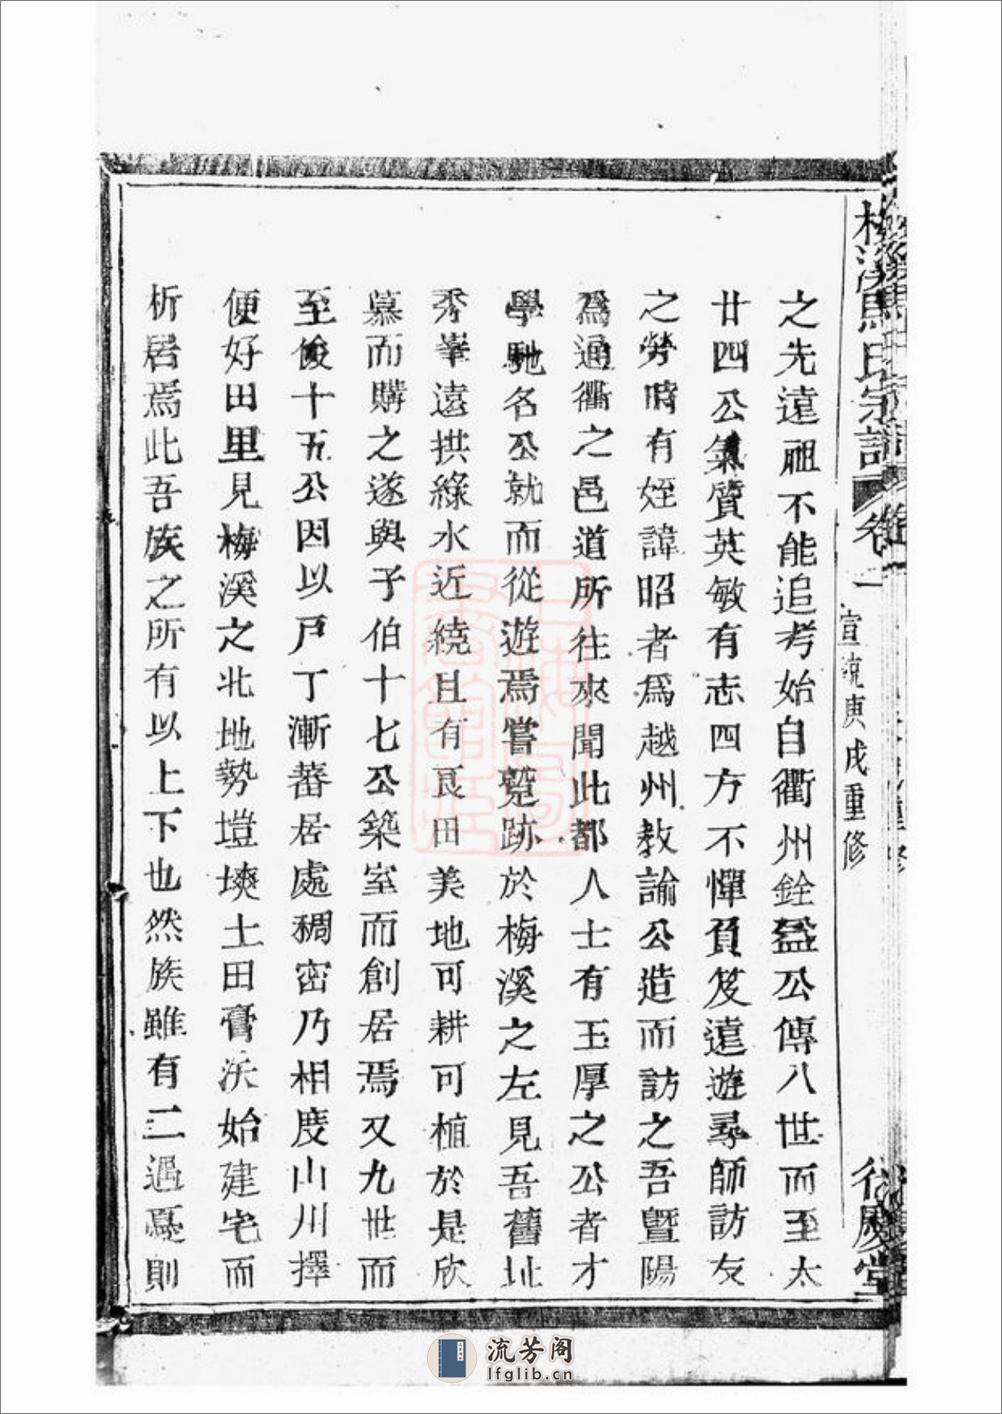 梅溪馬氏宗譜 卷一 宣統庚戌重修 衍慶堂
之先遠祖不能追考始自衢州銓益公傳八世而至太
廿四公氣質英敏有志四方不憚負笈遠遊尋師訪友
之勞時有姪諱昭者為越州教諭公造而訪之吾暨陽
為通衢之邑道所往來聞此都人士有玉厚之公者才
學馳名公就而從遊焉嘗躄跡於梅溪之左見吾舊址
秀峯遠拱綠水近繞且有良田美地可耕可植於是欣
慕而購之遂與子伯十七公築室而創居焉又九世而
至俊十五公因以戸丁漸蕃居處稠密乃相度山川擇
便好田里見梅溪之北地勢塏塽土田膏沃始建宅而
析居焉此吾族之所有以上下也然族雖有二遇憂則
流芳阁
lfglib.cn